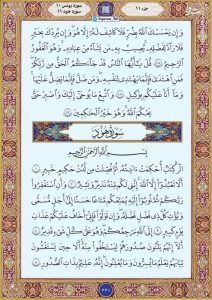 جزء ١١
سورة یونس ١٠
سورة هود ١١
وَإِن يَمْسَسْكَ ٱللَّهُ بِضُرٍّ فَلَا كَاشِفَ لَهُۥٓ إِلَّا هُوَ وَإِن يُرِدْكَ بِخَيْرٍ
فَلَا رَآدَّ لِفَضْلِهِۦ يُصِيبُ بِهِۦ مَن يَشَآءُ مِنْ عِبَادِهِۦ وَهُوَ ٱلْغَفُورُ
ٱلرَّحِيمُ ١٠٧ قُلْ يَٰٓأَيُّهَا ٱلنَّاسُ قَدْ جَآءَكُمُ ٱلْحَقُّ مِن رَّبِّكُمْ
فَمَنِ ٱهْتَدَىٰ فَإِنَّمَا يَهْتَدِى لِنَفْسِهِۦ وَمَن ضَلَّ فَإِنَّمَا يَضِلُّ عَلَيْهَا
وَمَآ أَنَا۠ عَلَيْكُم بِوَكِيلٍ ١٠٨ وَٱتَّبِعْ مَا يُوحَىٰٓ إِلَيْكَ وَٱصْبِرْ حَتَّىٰ
يَحْكُمَ ٱللَّهُ وَهُوَ خَيْرُ ٱلْحَٰكِمِينَ ١٠٩
سُورَةُ هُودٍ
بِسْمِ ٱللَّهِ ٱلرَّحْمَٰنِ ٱلرَّحِيمِ
الٓر كِتَٰبٌ أُحْكِمَتْ ءَايَٰتُهُۥ ثُمَّ فُصِّلَتْ مِن لَّدُنْ حَكِيمٍ خَبِيرٍ ١
أَلَّا تَعْبُدُوٓا۟ إِلَّا ٱللَّهَ إِنَّنِى لَكُم مِّنْهُ نَذِيرٌ وَبَشِيرٌ ٢ وَأَنِ ٱسْتَغْفِرُوا۟
رَبَّكُمْ ثُمَّ تُوبُوٓا۟ إِلَيْهِ يُمَتِّعْكُم مَّتَٰعًا حَسَنًا إِلَىٰٓ أَجَلٍ مُّسَمًّى
وَيُؤْتِ كُلَّ ذِى فَضْلٍ فَضْلَهُۥ وَإِن تَوَلَّوْا۟ فَإِنِّىٓ أَخَافُ عَلَيْكُمْ عَذَابَ
يَوْمٍ كَبِيرٍ ٣ إِلَى ٱللَّهِ مَرْجِعُكُمْ وَهُوَ عَلَىٰ كُلِّ شَىْءٍ قَدِيرٌ ٤
أَلَآ إِنَّهُمْ يَثْنُونَ صُدُورَهُمْ لِيَسْتَخْفُوا۟ مِنْهُ أَلَا حِينَ يَسْتَغْشُونَ
ثِيَابَهُمْ يَعْلَمُ مَا يُسِرُّونَ وَمَا يُعْلِنُونَ إِنَّهُۥ عَلِيمٌۢ بِذَاتِ ٱلصُّدُورِ ٥
٢٢١